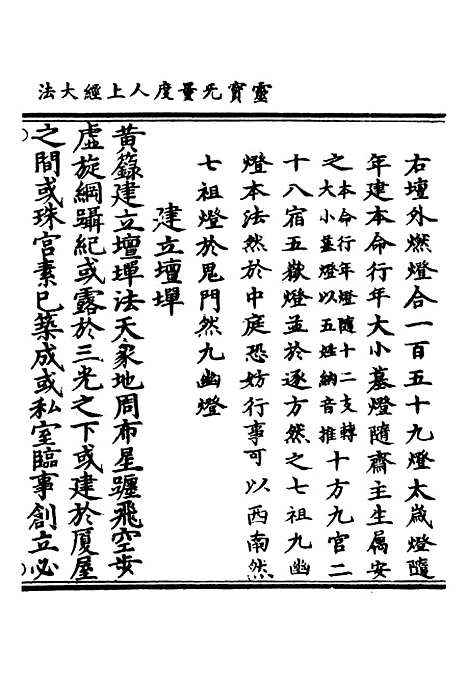 靈寶无量度人上經大法
右壇外燃燈合一百五十九燈太歲燈隨
年建本命行年大小墓燈隨齋主生屬安
之本命行年燈隨十二支轉大小墓燈以五姓納音推十方九宮二
十八宿五嶽燈孟於逐方然之七祖九幽
燈本法然於中庭恐妨行事可以西南然
七祖燈於鬼門然九幽燈
建立壇墠
黄籙建立壇墠法天象地周布星躔飛空步
虛旋綱躡紀或露於三光之下或建於厦屋
之間或珠宮素已築成或私室臨事創立必